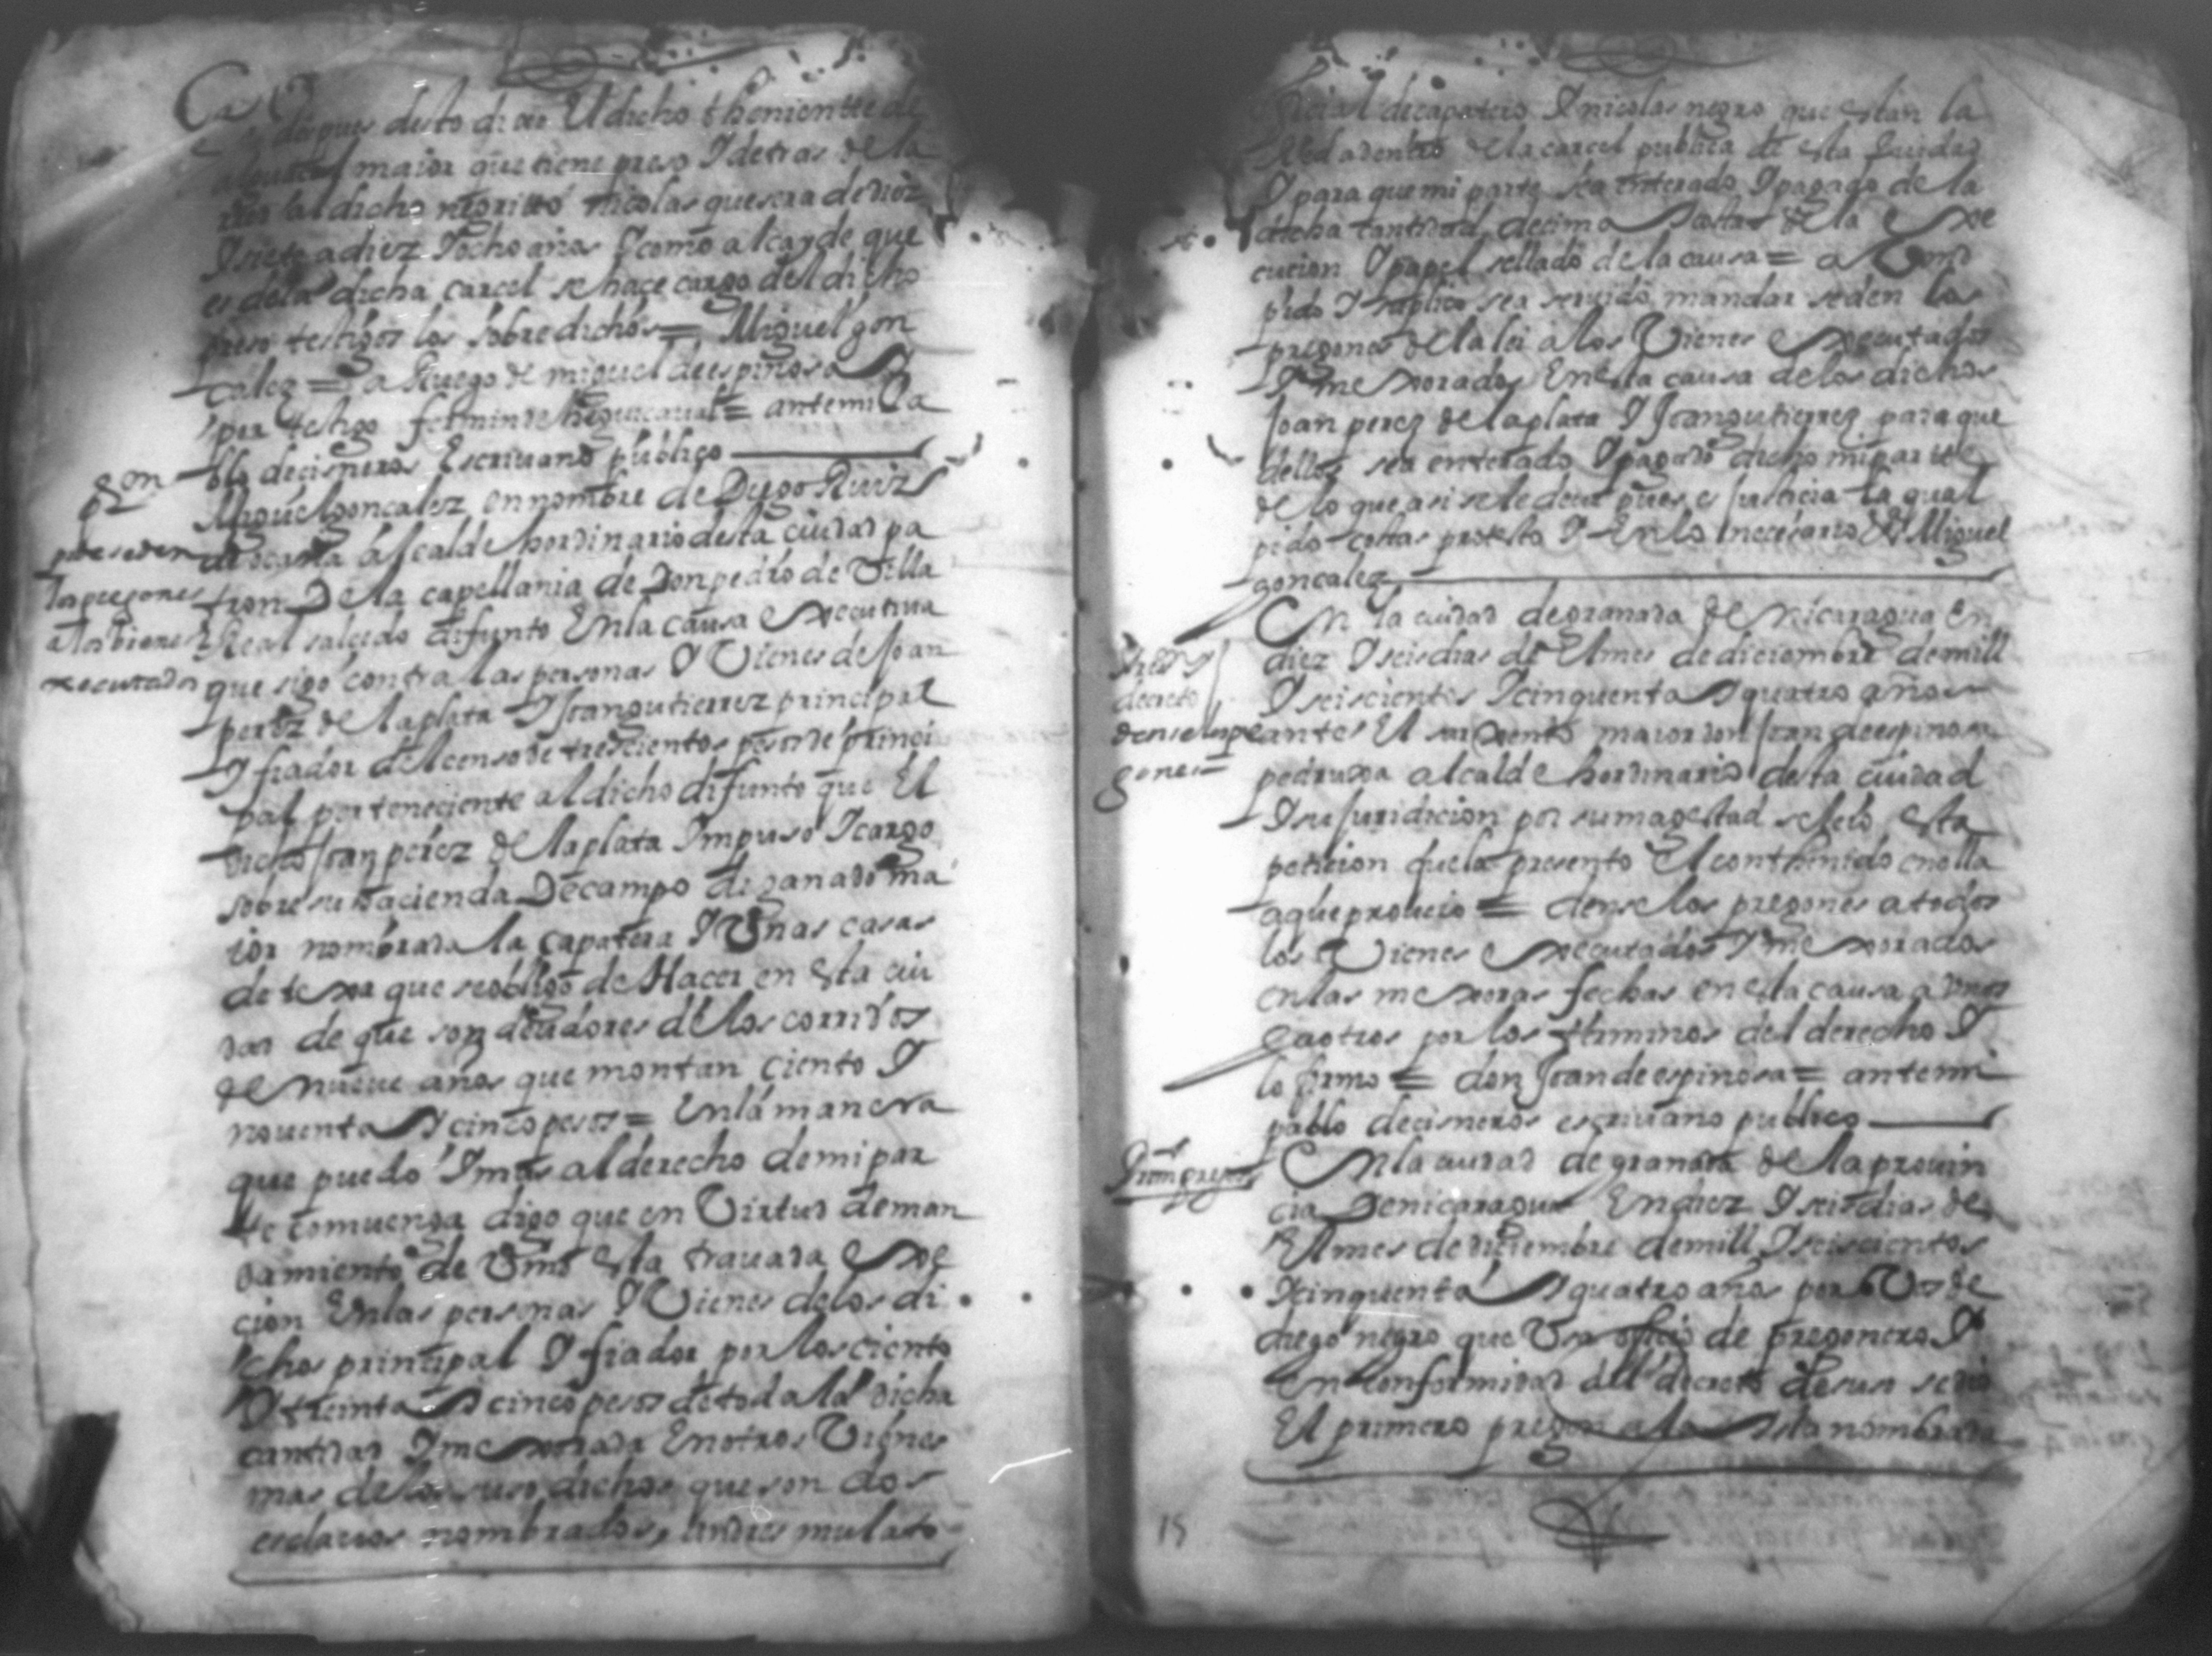 despues desto dixo El dicho thenientte de
alguacil maior que tiene preso Y detras de la
al dicho negritto nicolas que sera de diez
Y siete a diez Y ocho años Y como alcayde que
es de la dicha carcel se hace cargo del dicho
preso testigos los sobredichos = Miguel gon
calez = a Ruego de miguel de espinosa Y
por testigo fermin de = ante mi Pa
blo de cisneros Escriuano publico
Miguel goncalez en nombre de Diego Ruiz
de ocaña alcalde hordinario desta ciudad pa
tron De la capellania de Don pedro de Villa
Real salcido difunto En la causa executiua
que sigo contra las personas Y Vienes de Joan
perez de la plata Y Joan gutierrez principal
Y fiador del censo de trescientos pesos de princi
pal perteneciente al dicho difunto que El
dicho Joan perez de la plata Impuso Y cargo
sobre su hacienda De campo de ganado ma
ior nombrada la capatera Y Vnas casas
de texa que se obligo de Hacer en esta ciu
dad de que son deudores de los corridos
de nueue años que montan ciento Y
nouenta Y cinco pesos = En la manera
que puedo Y mas al derecho de mi par
te comuenga digo que en Virtud de man
damiento de Vmd esta trauada exe
cion En las personas Y Vienes de los di
chos principal Y fiador por los ciento
Y treinta Y cinco pesos de toda la dicha
cantidad Y mexorada En otros Vienes
mas de los suso dichos que son dos
esclauos nombrados, andres mulato
gon
pide se den
los pregones
a los bienes
executados
oficial de capatero Y nicolas negro que estan la
Red adentro de la carcel publica de esta ciudad
Y para que mi parte sea enterado Y pagado de la
dicha cantidad decima Y costas de la exe
cucion Y papel sellado de la causa = a Vmd
pido Y suplico sea seruido mandar se den los
pregones de la lei a los Vienes executados
Y mexorados En esta causa de los dichos
Joan perez de la plata Y Joan gutierrez para que
dellos sea enterado Y pagado dicho mi parte
de lo que asi se le deue pues es Justicia la qual
pido costas protesto Y En lo necesario Miguel
goncalez
En la ciudad de granada de nicaragua En
diez Y seis dias de El mes de diciembre de mill
Y seiscientos Y cinquenta Y quatro años
ante El sarxento maior don Joan de espinosa
pedrusa alcalde hordinario desta ciudad
Y su Juridicion por su magestad se leio esta
peticion que la presento El conthenido en ella
a que proueio = dense los pregones a todos
los Vienes executados Y mexorados
en las mexoras fechas en esta causa a Vnos
Y a otros por los terminos del derecho Y
lo firmo = don Joan de espinosa = ante mi
pablo de cisneros escriuano publico
En la ciudad de granada de la prouin
cia De nicaragua En diez Y seis dias de
El mes de diciembre de mill Y seiscientos
Y cinquenta Y quatro años por Voz de
diego negro que Vsa oficio de pregonero Y
En conformidad del decreto de suso se dio
El primero pregon a la nombrada
decreto
dense los pre
gones =
Prim pregon
15